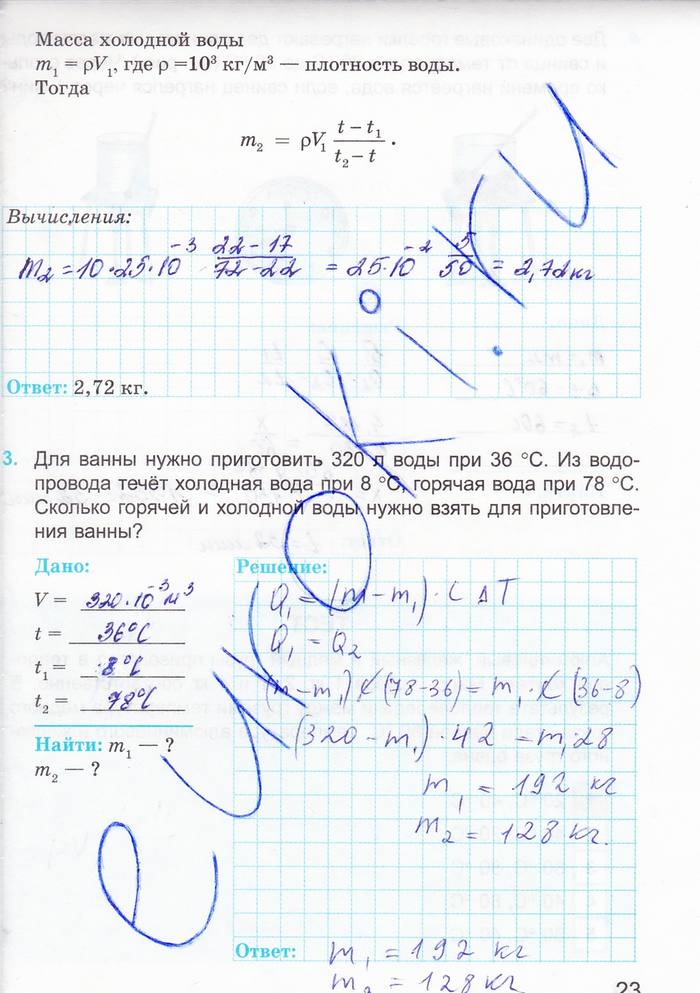 Масса холодной воды
m₁ = ρV₁, где ρ =10³ кг/м³ — плотность воды.
Тогда
m₂ = ρV₁ (t – t₁)/(t₂ – t) .
Вычисления:
m₂ = 10·25·10⁻³ (22-17)/(72-22) = 25·10⁻² 5/50 = 2,72 кг
Ответ: 2,72 кг.
3. Для ванны нужно приготовить 320 л воды при 36 °С. Из водо-
провода течёт холодная вода при 8 °С, горячая вода при 78 °С.
Сколько горячей и холодной воды нужно взять для приготовле-
ния ванны?
Дано:
V = 320·10⁻³ м³
t = 36°С
t₁ = 8°С
t₂ = 78°С
Найти: m₁ — ?
m₂ — ?
Решение:
Q₁ = (m - m₁)· C ΔT
Q₁ = Q₂
(m - m₁) C (78-36) = m₁ · C (36-8)
(320 - m₁) · 42 = m₁ 28
m₁ = 192 кг
m₂ = 128 кг.
Ответ: m₁ = 192 кг
m₂ = 128 кг
23
e Ukoki.ru